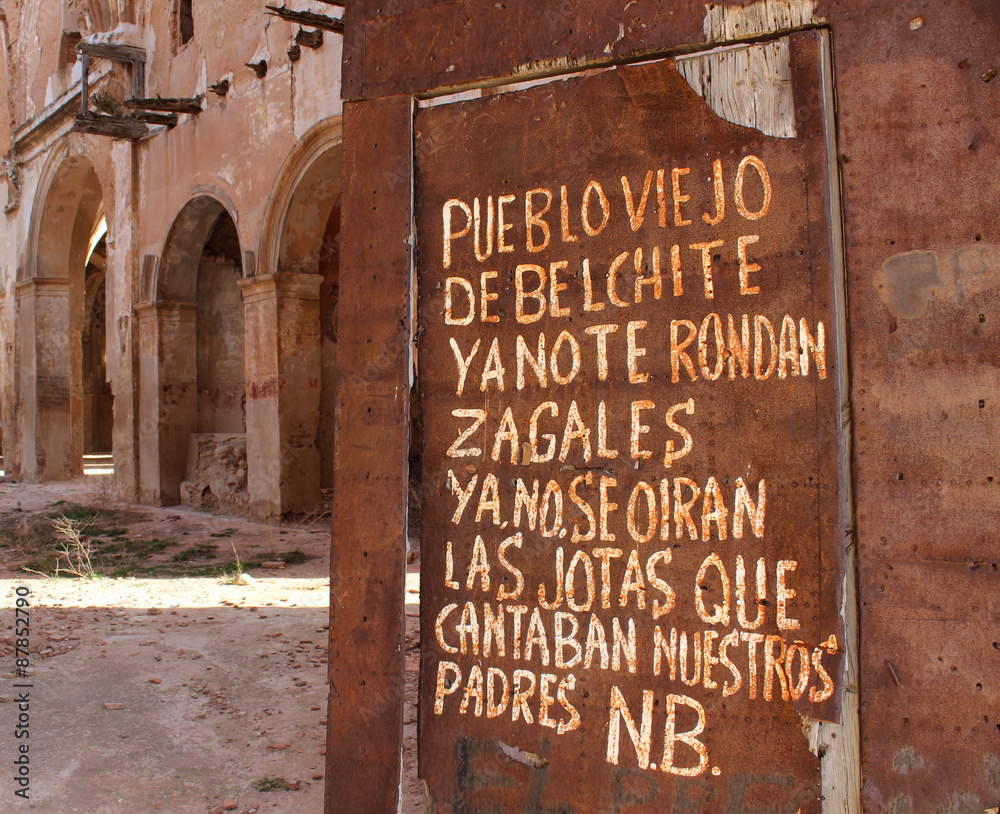 PUEBLO VIEJO
DE BELCHITE
YA NO TE RONDAN
ZAGALES
YA.NO.SE OIRAN
LAS JOTAS QUE
CANTABAN NUESTROS
PADRES N.B.
87852790